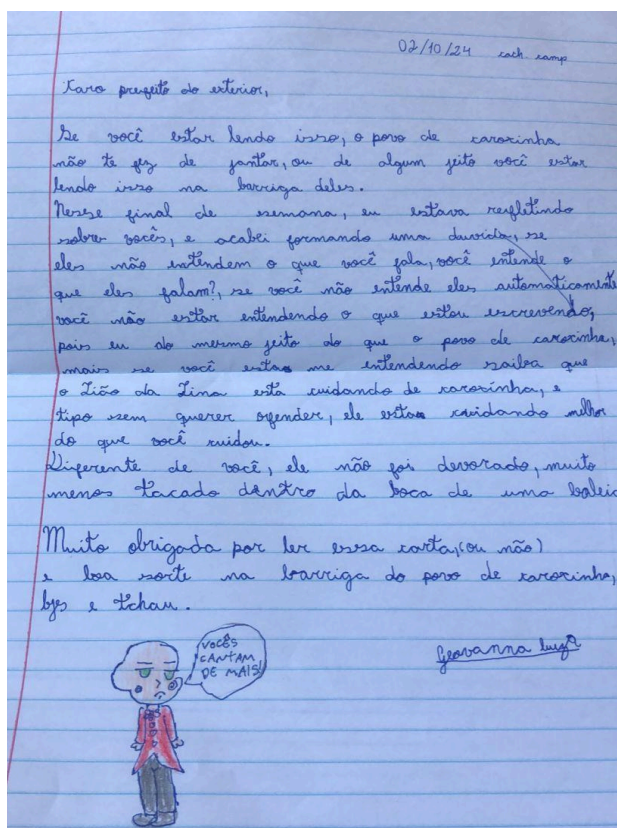 02/10/24 cach. camp
Caro prefeito do exterior,
Se você estar lendo isso, o povo de caroxinha
não te fez de jantar, ou de algum jeito você estar
lendo isso na barriga deles.
Nesse final de semana, eu estava refletindo
sobre vocês, e acabei formando uma duvida, se
eles não entendem o que você fala, você entende o
que eles falam?, se você não entende eles automaticamente
você não estar entendendo o que estou escrevendo,
pois eu do mesmo jeito do que o povo de caroxinha,
mais se você estar me entendendo saiba que
o Zião da Zina está cuidando de caroxinha, e
tipo sem querer ofender, ele estar cuidando melhor
do que você cuidou.
Diferente de você, ele não foi devorado, muito
menos tacado dentro da boca de uma baleia
Muito obrigada por ler essa carta,(ou não)
e boa sorte na barriga do povo de caroxinha,
bjs e tchau.
VOCÊS
CANTAM
DE MAIS!
Geovanna Luiza